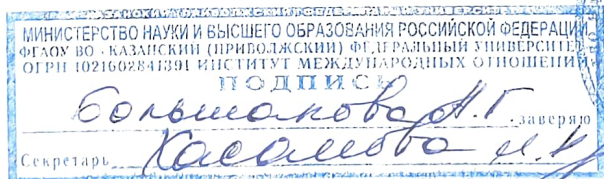 МИНИСТЕРСТВО НАУКИ И ВЫСШЕГО ОБРАЗОВАНИЯ РОССИЙСКОЙ ФЕДЕРАЦИИ
ФГАОУ ВО «КАЗАНСКИЙ (ПРИВОЛЖСКИЙ) ФЕДЕРАЛЬНЫЙ УНИВЕРСИТЕТ
ОГРН 1021602841391 ИНСТИТУТ МЕЖДУНАРОДНЫХ ОТНОШЕНИЙ
ПОДПИСЬ
Большакова Н.Г. заверяю
Секретарь Хасанова